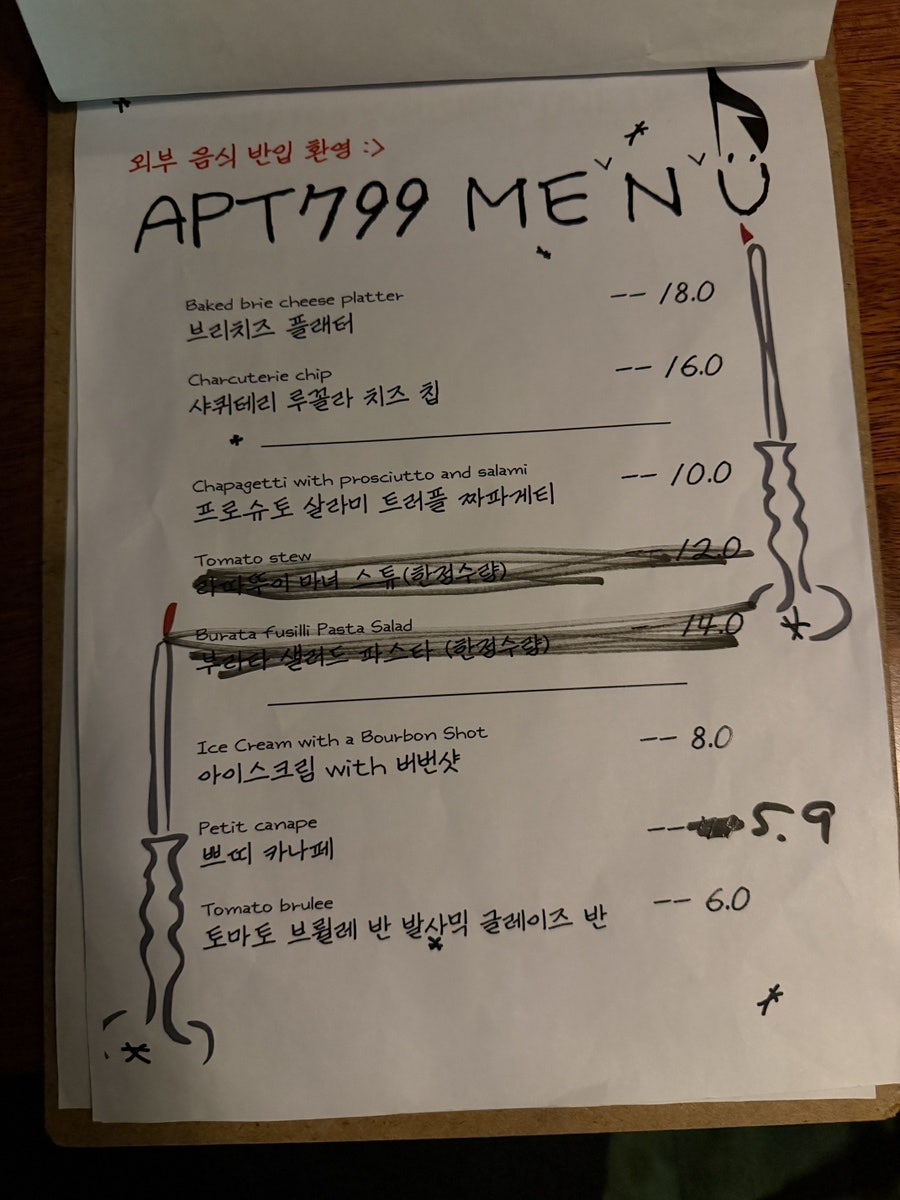 외부 음식 반입 환영 :>
APT799 MENU
Baked brie cheese platter -- 18.0
브리치즈 플래터
Charcuterie chip -- 16.0
샤퀴테리 루꼴라 치즈 칩
Chapagetti with prosciutto and salami -- 10.0
프로슈토 살라미 트러플 짜파게티
Tomato stew -- 12.0
라따뚜이 마녀 스튜(한정수량)
Burata fusilli Pasta Salad -- 14.0
부라타 샐러드 파스타 (한정수량)
Ice Cream with a Bourbon Shot -- 8.0
아이스크림 with 버번샷
Petit canape -- 5.9
쁘띠 카나페
Tomato brulee -- 6.0
토마토 브륄레 반 발사믹 글레이즈 반